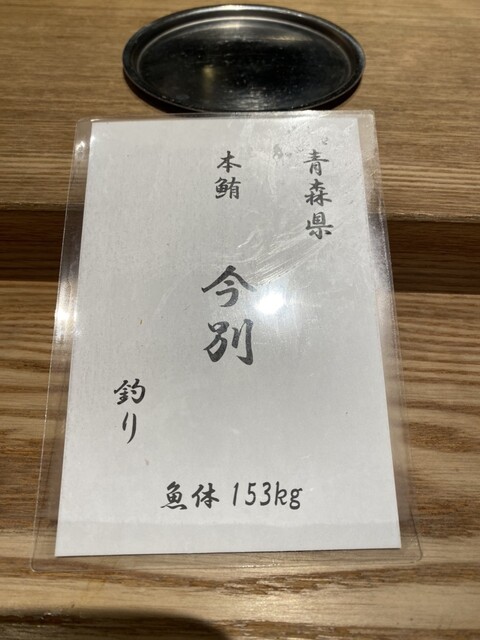 青森県
本鮪
今別
釣り
魚体 153kg